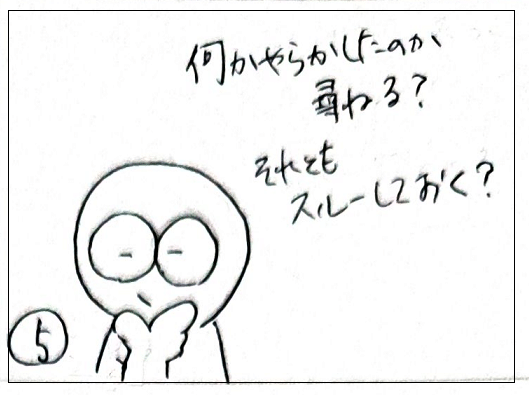 何かやらかしたのか
尋ねる?
それとも
スルーしておく?
5